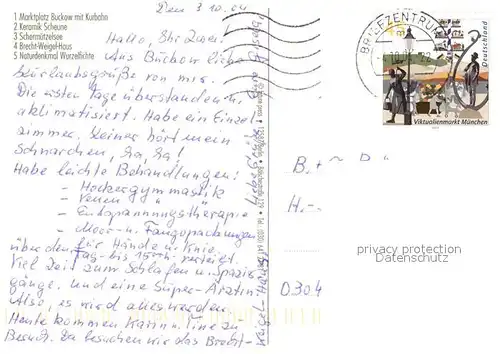 1 Marktplatz Buckow mit Kurbahn
2 Keramik Scheune
3 Schermützelsee
4 Brecht-Weigel-Haus
5 Naturdenkmal Wurzelfichte
Den 3.10.04
Hallo, Ihr Zwei!
Aus Buckow liebe
Urlaubsgrüße von mir.
Die ersten Tage überstanden u.
aklimatisiert. Habe ein Einzel
zimmer. Keiner hört mein
Schnarchen, Ha, Ha!
Habe leichte Behandlungen:
– Hockergymnastik
– Venen "
– Entspannungstherapie
– Moor- u. Fangopackungen
für Hände u. Knie.
über den Tag bis 15 verteigt.
Viel Zeit zum Schlafen u. Spazier
gänge. und eine Super-Ärztin.
Also, es wird alles werden.
Heute kommen Karin u. Tine zu
Besuch. Da besuchen wir das Brecht-
Weigel-Haus.
Liebe Grüße
BRIEFZENTRUM
Deutschland
Viktualienmarkt München
B. + ~ D "
H. -
D304
privacy protection
Datenschutz